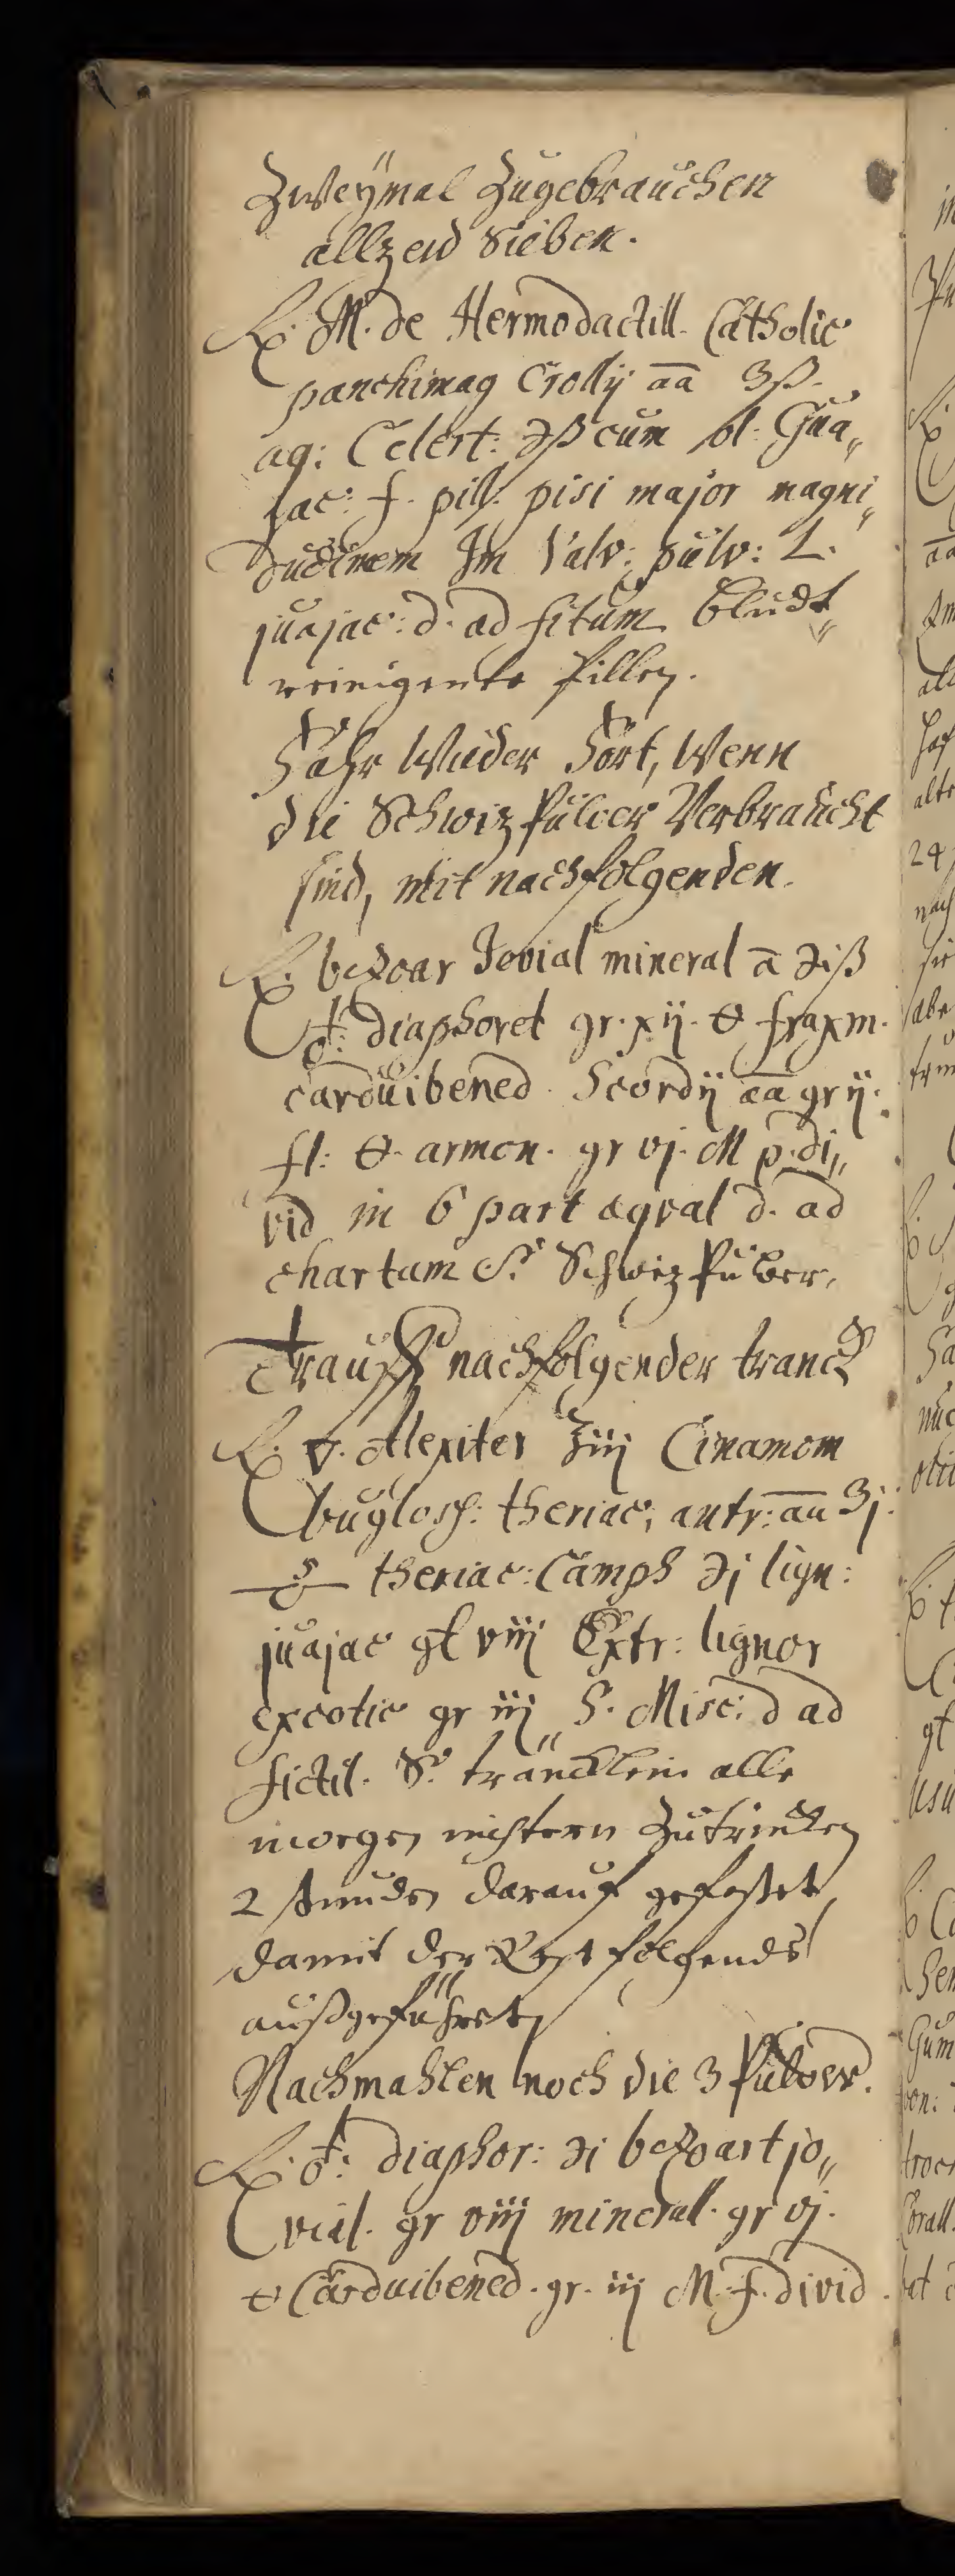 Zweÿmal Zugebrauchen
allzeid Sieben.
℞. M. de Hermodactill. Catholic
panchimag Crollÿ āā ʒß.
aq: Celest: ℈ß cum ol: Gua„
jac: f. pill: pisi major magni„
dudinem In Valv: pulv: L.
juajac: d. ad fitum bludt„
reinigente Pillen.
Fahr Wieder Fort, Wenn
die Schwiz Pulver Verbraucht
sind, mit nachfolgenden.
℞. bezoar Jovial mineral ā ℈iß
♁: diaphoret gr. xij. 🜔 fraxin.
cardui bened. Scordÿ āā gr ij.
fl: 🜔. armon. gr vj. M p. di„
vid in 6 part aqval d. ad
chartam S. Schwiz Pulver.
Trauff nachfolgender tranck
℞. 🜄. Alexiter ℥iij Cinamom
bugloss: theriac; antr: āā ʒj.
theriac: Camph ℈j lign:
juajac gt viij Extr: lignor
excotic gr iij S. Misc: d ad
fictil. S. träncklein alle
morgen nichtern Zutrincken
2 stunden darauf gefastet
damit der Rest folgends
außgeführet
Nachmahlen noch die 3 Pulver.
℞. ♁: diaphor: ℈i bezoart jo„
vial. gr viij mineral. gr vj.
🜔 Cardui bened. gr. iij M. f. divid.